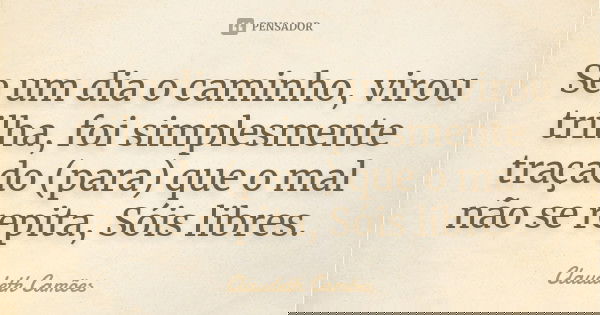 PENSADOR
Se um dia o caminho, virou
trilha, foi simplesmente
traçado (para) que o mal
não se repita, Sóis libres.
Claudeth Camões